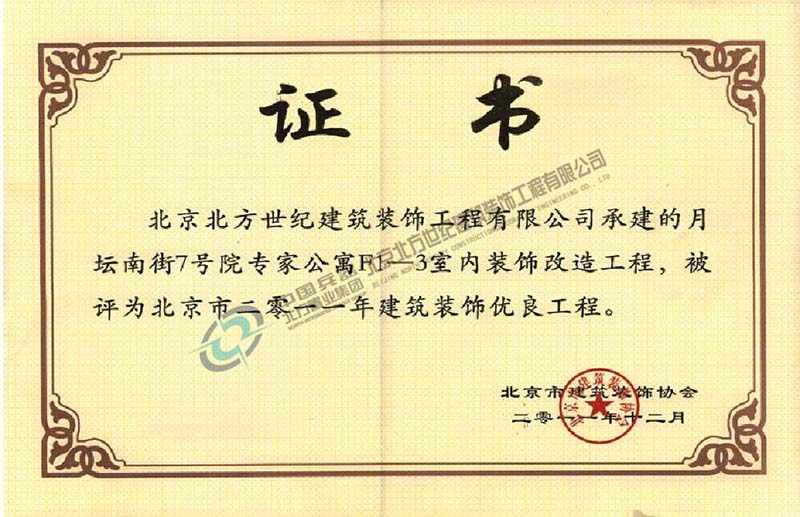 证 书
北京北方世纪建筑装饰工程有限公司承建的月
坛南街7号院专家公寓F1—3室内装饰改造工程，被
评为北京市二零一一年建筑装饰优良工程。
北京市建筑装饰协会
二零一一年十二月
北京市建筑装饰协会
中国兵器 北京北方世纪建筑装饰工程有限公司
北方置业集团